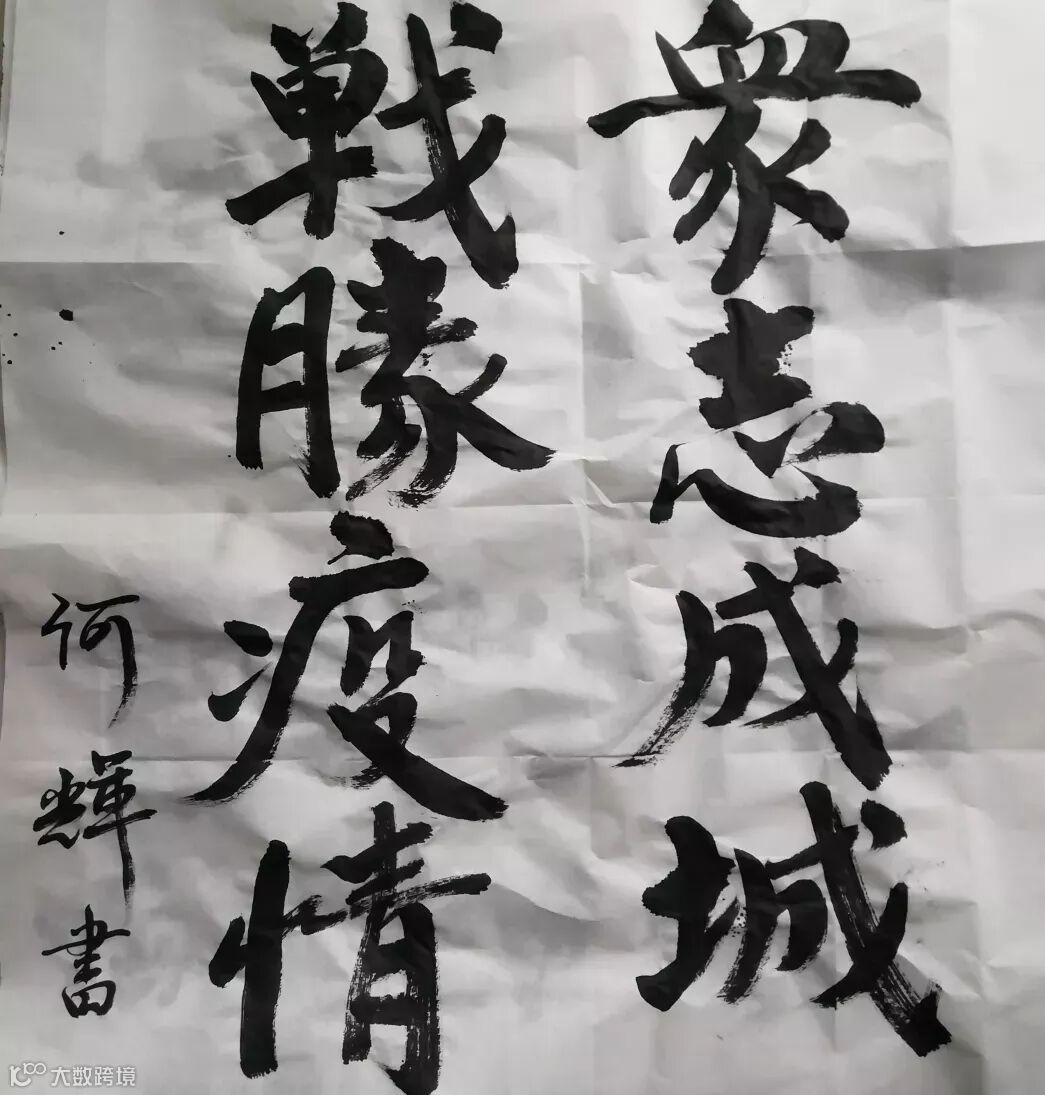 眾志成城
戰勝疫情
何輝書
大数跨境